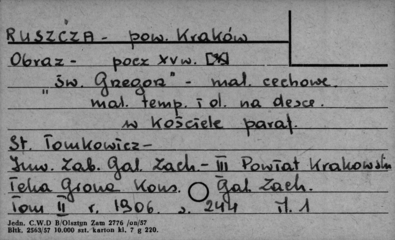 RUSZCZA - pow. Kraków
Obraz - pocz XV w.
"św. Grzegorz" - mal. cechowe.
mal. temp. i ol. na desce.
w kościele paraf.
St. Tomkowicz -
Inw. Zab. Gal. Zach. - III Powiat Krakowski
Teka Grona Kons. Gal. Zach.
Tom II r. 1906. s. 244 il. 1
Jedn. C.W.D B/Olsztyn Zam 2776 /on/57
Bltk. 2563/57 10.000 szt. karton kl. 7 g 220.